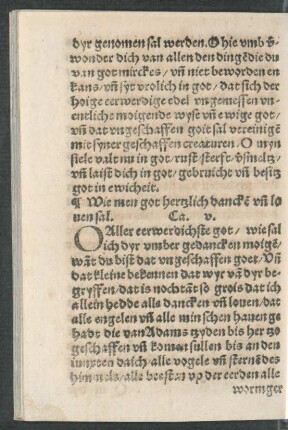 dyr genomen sal werden. O hie vmb v̄
wonder dich van allen den dingē die du
van got mirckes / vn̄ niet beworden en
kans / vn̄ syt vrolich in got / dat sich der
hoige eerwerdige edel vngemessen vn
entliche moigende wyse vn̄ ewige got /
vn̄ dat vngeschaffen goit sal vereinigē
mit syner geschaffen creaturen. O myn
siele valt nu in got / rust / sterft / v̄smeltz /
vn̄ laist dich in got / gebruicht vn̄ besitz
got in ewicheit.
¶ Wie men got hertzlich danckē vn̄ lo
uen sal. Ca. v.
O Aller eerwerdichste got / wie sal
ich dyr vmber gedancken moigē /
wāt du bist dat vngeschaffen goet / Vn̄
dat kleine bekennen dat wyr vā dyr be-
gryffen / dat is nochtāt so grois dat ich
allein hedde alls dancken vn̄ louen / dat
alle engelen vn̄ alle minschen hauen ge
hadt die van Adams tzyden bis her tzo
geschaffen vn̄ komen sullen bis an den
iungsten daich / alle vogele vn̄ sternē des
himmels / alle beesten vp der eerden alle
wormger